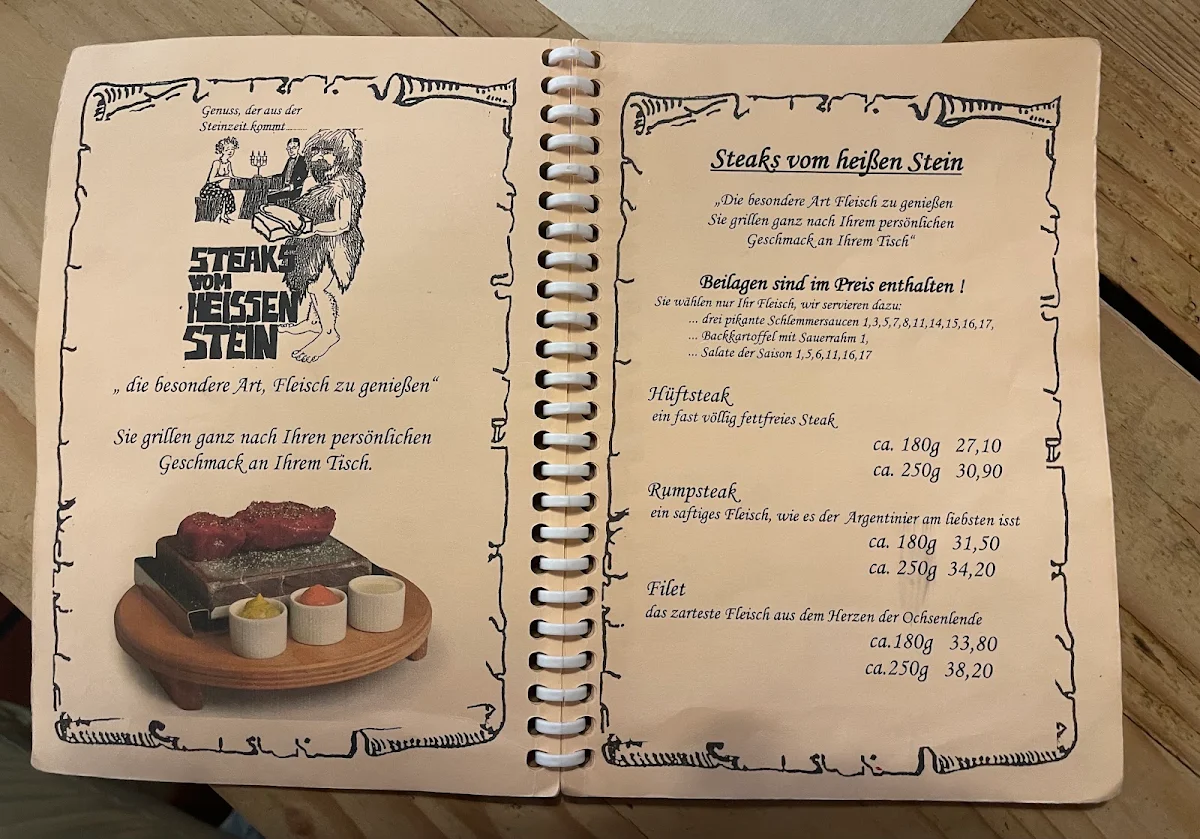 Genuss, der aus der
Steinzeit kommt
STEAKS
VOM
HEISSEN
STEIN
„ die besondere Art, Fleisch zu genießen“
Sie grillen ganz nach Ihren persönlichen
Geschmack an Ihrem Tisch.
Steaks vom heißen Stein
„Die besondere Art Fleisch zu genießen
Sie grillen ganz nach Ihrem persönlichen
Geschmack an Ihrem Tisch“
Beilagen sind im Preis enthalten !
Sie wählen nur Ihr Fleisch, wir servieren dazu:
... drei pikante Schlemmersaucen 1,3,5,7,8,11,14,15,16,17,
... Backkartoffel mit Sauerrahm 1,
... Salate der Saison 1,5,6,11,16,17
Hüftsteak
ein fast völlig fettfreies Steak
ca. 180g 27,10
ca. 250g 30,90
Rumpsteak
ein saftiges Fleisch, wie es der Argentinier am liebsten isst
ca. 180g 31,50
ca. 250g 34,20
Filet
das zarteste Fleisch aus dem Herzen der Ochsenlende
ca.180g 33,80
ca.250g 38,20